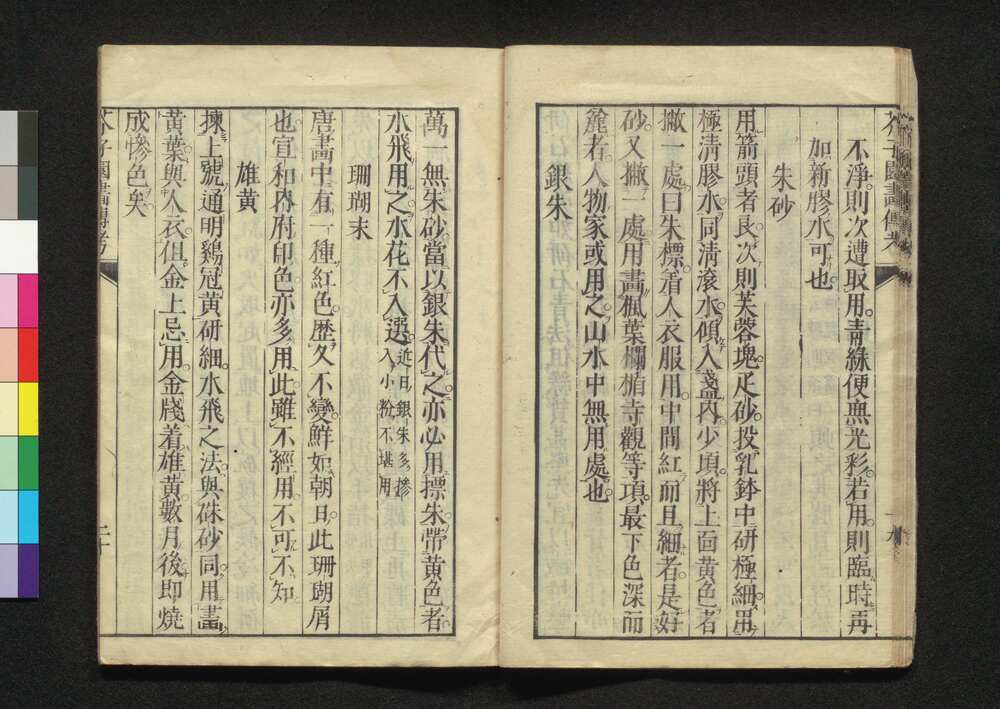 不淨則次遭取用靑綠便無光彩若用則臨時再
加新膠水可也
朱砂
用箭頭者良次則芙蓉塊疋砂投乳鉢中研極細用
極淸膠水同淸滾水傾入盞內少頃將上面黃色者
撇一處曰朱標着人衣服用中間紅而且細者是好
砂又撇一處用畫楓葉欄楯寺觀等項最下色深而
麄者人物家或用之山水中無用處也
銀朱
芥子園畫傳考
十九
萬一無朱砂當以銀朱代之亦必用摽朱帶黃色者
水飛用之水花不入選近日銀朱多摻
入小粉不堪用
珊瑚末
唐畫中有一種紅色歷久不變鮮如朝日此珊瑚屑
也宣和內府印色亦多用此雖不經用不可不知
雄黃
揀上號通明鷄冠黃硏細水飛之法與硃砂同用畫
黃葉與人衣但金上忌用金牋着雄黃數月後卽燒
成慘色矣
芥子園畫傳考
二十